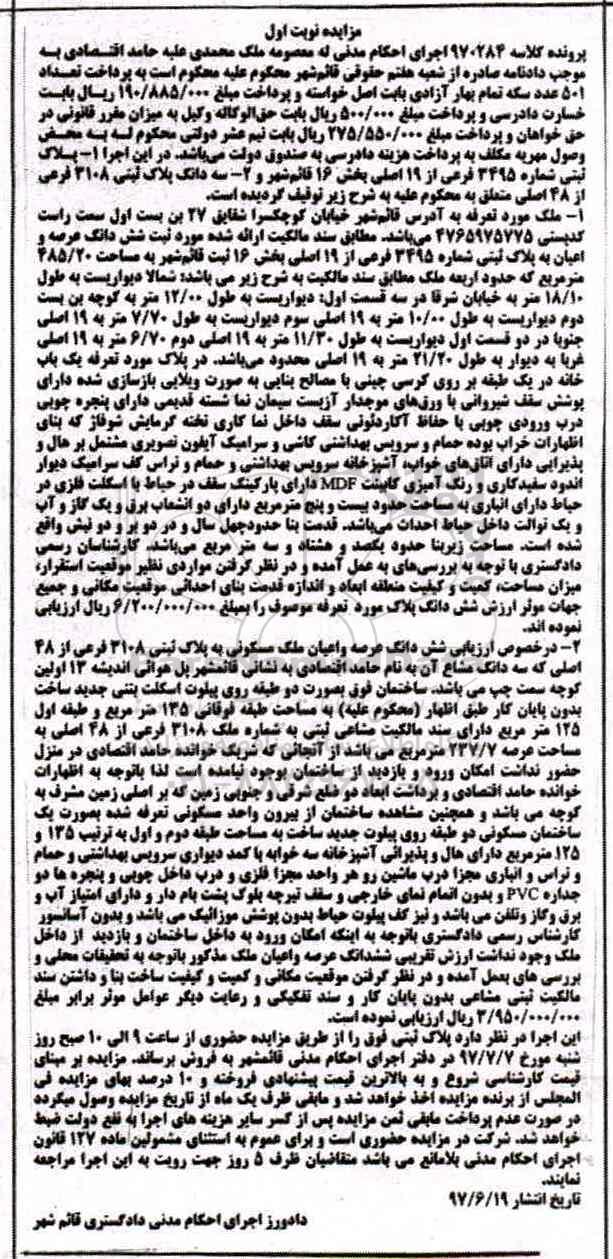 مزایده نوبت اول
پرونده کلاسه ۹۷۰۲۸۴ اجرای احکام مدنی له معصومه ملک محمدی علیه حامد اقتصادی به
موجب دادنامه صادره از شعبه هفتم حقوقی قائم‌شهر محکوم علیه محکوم است به پرداخت تعداد
۵۰۱ عدد سکه تمام بهار آزادی بابت اصل خواسته و پرداخت مبلغ ۱۹۰/۸۸۵/۰۰۰ ریال بابت
خسارت دادرسی و پرداخت مبلغ ۵۰۰/۰۰۰ ریال بابت حق‌الوکاله وکیل به میزان مقرر قانونی در
حق خواهان و پرداخت مبلغ ۲۷۵/۵۵۰/۰۰۰ ریال بابت نیم عشر دولتی محکوم له به محض
وصول مهریه مکلف به پرداخت هزینه دادرسی به صندوق دولت می‌باشد. در این اجرا ۱- پلاک
ثبتی شماره ۳۴۹۵ فرعی از ۱۹ اصلی بخش ۱۶ قائم‌شهر و ۲- سه دانگ پلاک ثبتی ۳۱۰۸ فرعی
از ۴۸ اصلی متعلق به محکوم علیه به شرح زیر توقیف گردیده است.
۱- ملک مورد تعرفه به آدرس قائم‌شهر خیابان کوچکسرا شقایق ۲۷ بن بست اول سمت راست
کدپستی ۴۷۶۵۹۷۵۷۷۵ می‌باشد. مطابق سند مالکیت ارائه شده مورد ثبت شش دانگ عرصه و
اعیان به پلاک ثبتی شماره ۳۴۹۵ فرعی از ۱۹ اصلی بخش ۱۶ ثبت قائم‌شهر به مساحت ۴۸۵/۲۰
مترمربع که حدود اربعه ملک مطابق سند مالکیت به شرح زیر می باشد: شمالا دیواریست به طول
۱۸/۱۰ متر به خیابان شرقا در سه قسمت اول: دیواریست به طول ۱۲/۰۰ متر به کوچه بن بست
دوم دیواریست به طول ۱۰/۰۰ متر به ۱۹ اصلی سوم دیواریست به طول ۷/۷۰ متر به ۱۹ اصلی
جنوبا در دو قسمت اول دیواریست به طول ۱۱/۳۰ متر به ۱۹ اصلی دوم ۶/۷۰ متر به ۱۹ اصلی
غربا به دیوار به طول ۲۱/۲۰ متر به ۱۹ اصلی محدود می‌باشد. در پلاک مورد تعرفه یک باب
خانه در یک طبقه بر روی کرسی چینی با مصالح بنایی به صورت ویلایی بازسازی شده دارای
پوشش سقف شیروانی با ورق‌های موجدار آزبست سیمان نما شسته قدیمی دارای پنجره چوبی
درب ورودی چوبی با حفاظ آکاردئونی سقف داخل نما کاری تخته گرمایش شوفاژ که بنای
اظهارات خراب بوده حمام و سرویس بهداشتی کاشی و سرامیک آیفون تصویری مشتمل بر هال و
پذیرایی دارای اتاق‌های خواب، آشپزخانه سرویس بهداشتی و حمام و تراس کف سرامیک دیوار
اندود سفیدکاری و رنگ آمیزی کابینت MDF دارای پارکینگ سقف در حیاط با اسکلت فلزی در
حیاط دارای انباری به مساحت حدود بیست و پنج مترمربع دارای دو انشعاب برق و یک گاز و آب
و یک توالت داخل حیاط احداث می‌باشد. قدمت بنا حدودچهل سال و در دو بر و دو نبش واقع
شده است. مساحت زیربنا حدود یکصد و هشتاد و سه متر مربع می‌باشد. کارشناسان رسمی
دادگستری با توجه به بررسی‌های به عمل آمده و در نظر گرفتن مواردی نظیر موقعیت استقرار،
میزان مساحت، کمیت و کیفیت منطقه ابعاد و اندازه قدمت بنای احداثی موقعیت مکانی و جمیع
جهات موثر ارزش شش دانگ پلاک مورد تعرفه موصوف را بمبلغ ۶/۲۰۰/۰۰۰/۰۰۰ ریال ارزیابی
نموده اند.
۲- درخصوص ارزیابی شش دانگ عرصه واعیان ملک مسکونی به پلاک ثبتی ۳۱۰۸ فرعی از ۴۸
اصلی که سه دانگ مشاع آن به نام حامد اقتصادی به نشانی قائمشهر پل هوائی اندیشه ۱۳ اولین
کوچه سمت چپ می باشد. ساختمان فوق بصورت دو طبقه روی پیلوت اسکلت بتنی جدید ساخت
بدون پایان کار طبق اظهار (محکوم علیه) به مساحت طبقه فوقانی ۱۳۵ متر مربع و طبقه اول
۱۲۵ متر مربع دارای سند مالکیت مشاعی ثبتی به شماره ملک ۳۱۰۸ فرعی از ۴۸ اصلی به
مساحت عرصه ۲۳۷/۷ مترمربع می باشد از آنجائی که شریک خوانده حامد اقتصادی در منزل
حضور نداشت امکان ورود و بازدید از ساختمان بوجود نیامده است لذا باتوجه به اظهارات
خوانده حامد اقتصادی و برداشت ابعاد دو ضلع شرقی و جنوبی زمین که بر اصلی زمین مشرف به
کوچه می باشد و همچنین مشاهده ساختمان از بیرون واحد مسکونی تعرفه شده بصورت یک
ساختمان مسکونی دو طبقه روی پیلوت جدید ساخت به مساحت طبقه دوم و اول به ترتیب ۱۳۵ و
۱۲۵ مترمربع دارای هال و پذیرائی آشپزخانه سه خوابه با کمد دیواری سرویس بهداشتی و حمام
و تراس و انباری مجزا درب ماشین رو هر واحد مجزا فلزی و درب داخل چوبی و پنجره ها دو
جداره PVC و بدون اتمام نمای خارجی و سقف تیرچه بلوک پشت بام دار و دارای امتیاز آب و
برق وگاز وتلفن می باشد و نیز کف پیلوت حیاط بدون پوشش موزائیک می باشد و بدون آسانسور
کارشناس رسمی دادگستری باتوجه به اینکه امکان ورود به داخل ساختمان و بازدید از داخل
ملک وجود نداشت ارزش تقریبی ششدانگ عرصه واعیان ملک مذکور باتوجه به تحقیقات محلی و
بررسی های بعمل آمده و در نظر گرفتن موقعیت مکانی و کمیت و کیفیت ساخت بنا و داشتن سند
مالکیت ثبتی مشاعی بدون پایان کار و سند تفکیکی و رعایت دیگر عوامل موثر برابر مبلغ
۳/۹۵۰/۰۰۰/۰۰۰ ریال ارزیابی نموده است.
این اجرا در نظر دارد پلاک ثبتی فوق را از طریق مزایده حضوری از ساعت ۹ الی ۱۰ صبح روز
شنبه مورخ ۹۷/۷/۷ در دفتر اجرای احکام مدنی قائمشهر به فروش برساند. مزایده بر مبنای
قیمت کارشناسی شروع و به بالاترین قیمت پیشنهادی فروخته و ۱۰ درصد بهای مزایده فی
المجلس از برنده مزایده اخذ خواهد شد و مابقی ظرف یک ماه از تاریخ مزایده وصول میگردد
در صورت عدم پرداخت مابقی ثمن مزایده پس از کسر سایر هزینه های اجرا به نفع دولت ضبط
خواهد شد. شرکت در مزایده حضوری است و برای عموم به استثنای مشمولین ماده ۱۲۷ قانون
اجرای احکام مدنی بلامانع می باشد متقاضیان ظرف ۵ روز جهت رویت به این اجرا مراجعه
نمایند.
تاریخ انتشار ۹۷/۶/۱۹
دادورز اجرای احکام مدنی دادگستری قائم شهر